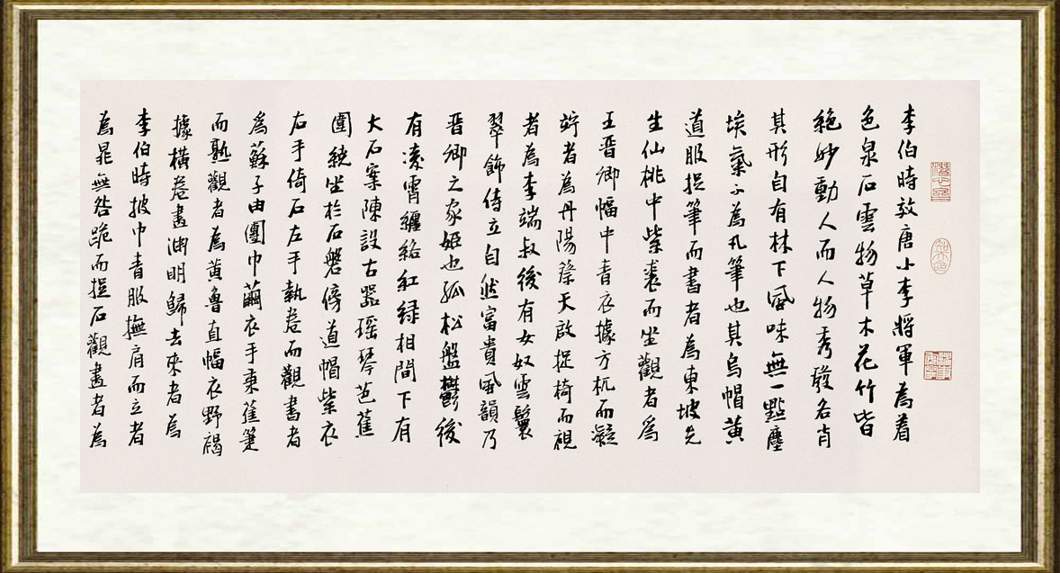 李伯時效唐小李將軍為着
色泉石雲物草木花竹皆
絕妙動人而人物秀發各肖
其形自有林下風味無一點塵
埃氣不為凡筆也其烏帽黄
道服捉筆而書者為東坡先
生仙桃巾紫裘而坐觀者為
王晉卿幅巾青衣據方机而凝
竚者為丹陽蔡天啟捉椅而視
者為李端叔後有女奴雲鬟
翠飾侍立自然富貴風韻乃
晉卿之家姬也孤松盤鬱後
有凌霄纏絡紅緑相間下有
大石案陳設古器瑶琴芭蕉
圍繞坐於石磐傍道帽紫衣
右手倚石左手執卷而觀書者
為蘇子由團巾繭衣手秉蕉箑
而熟觀者為黄魯直幅衣野褐
據橫卷畫淵明歸去來者為
李伯時披巾青服撫肩而立者
為晁無咎跪而捉石觀畫者為